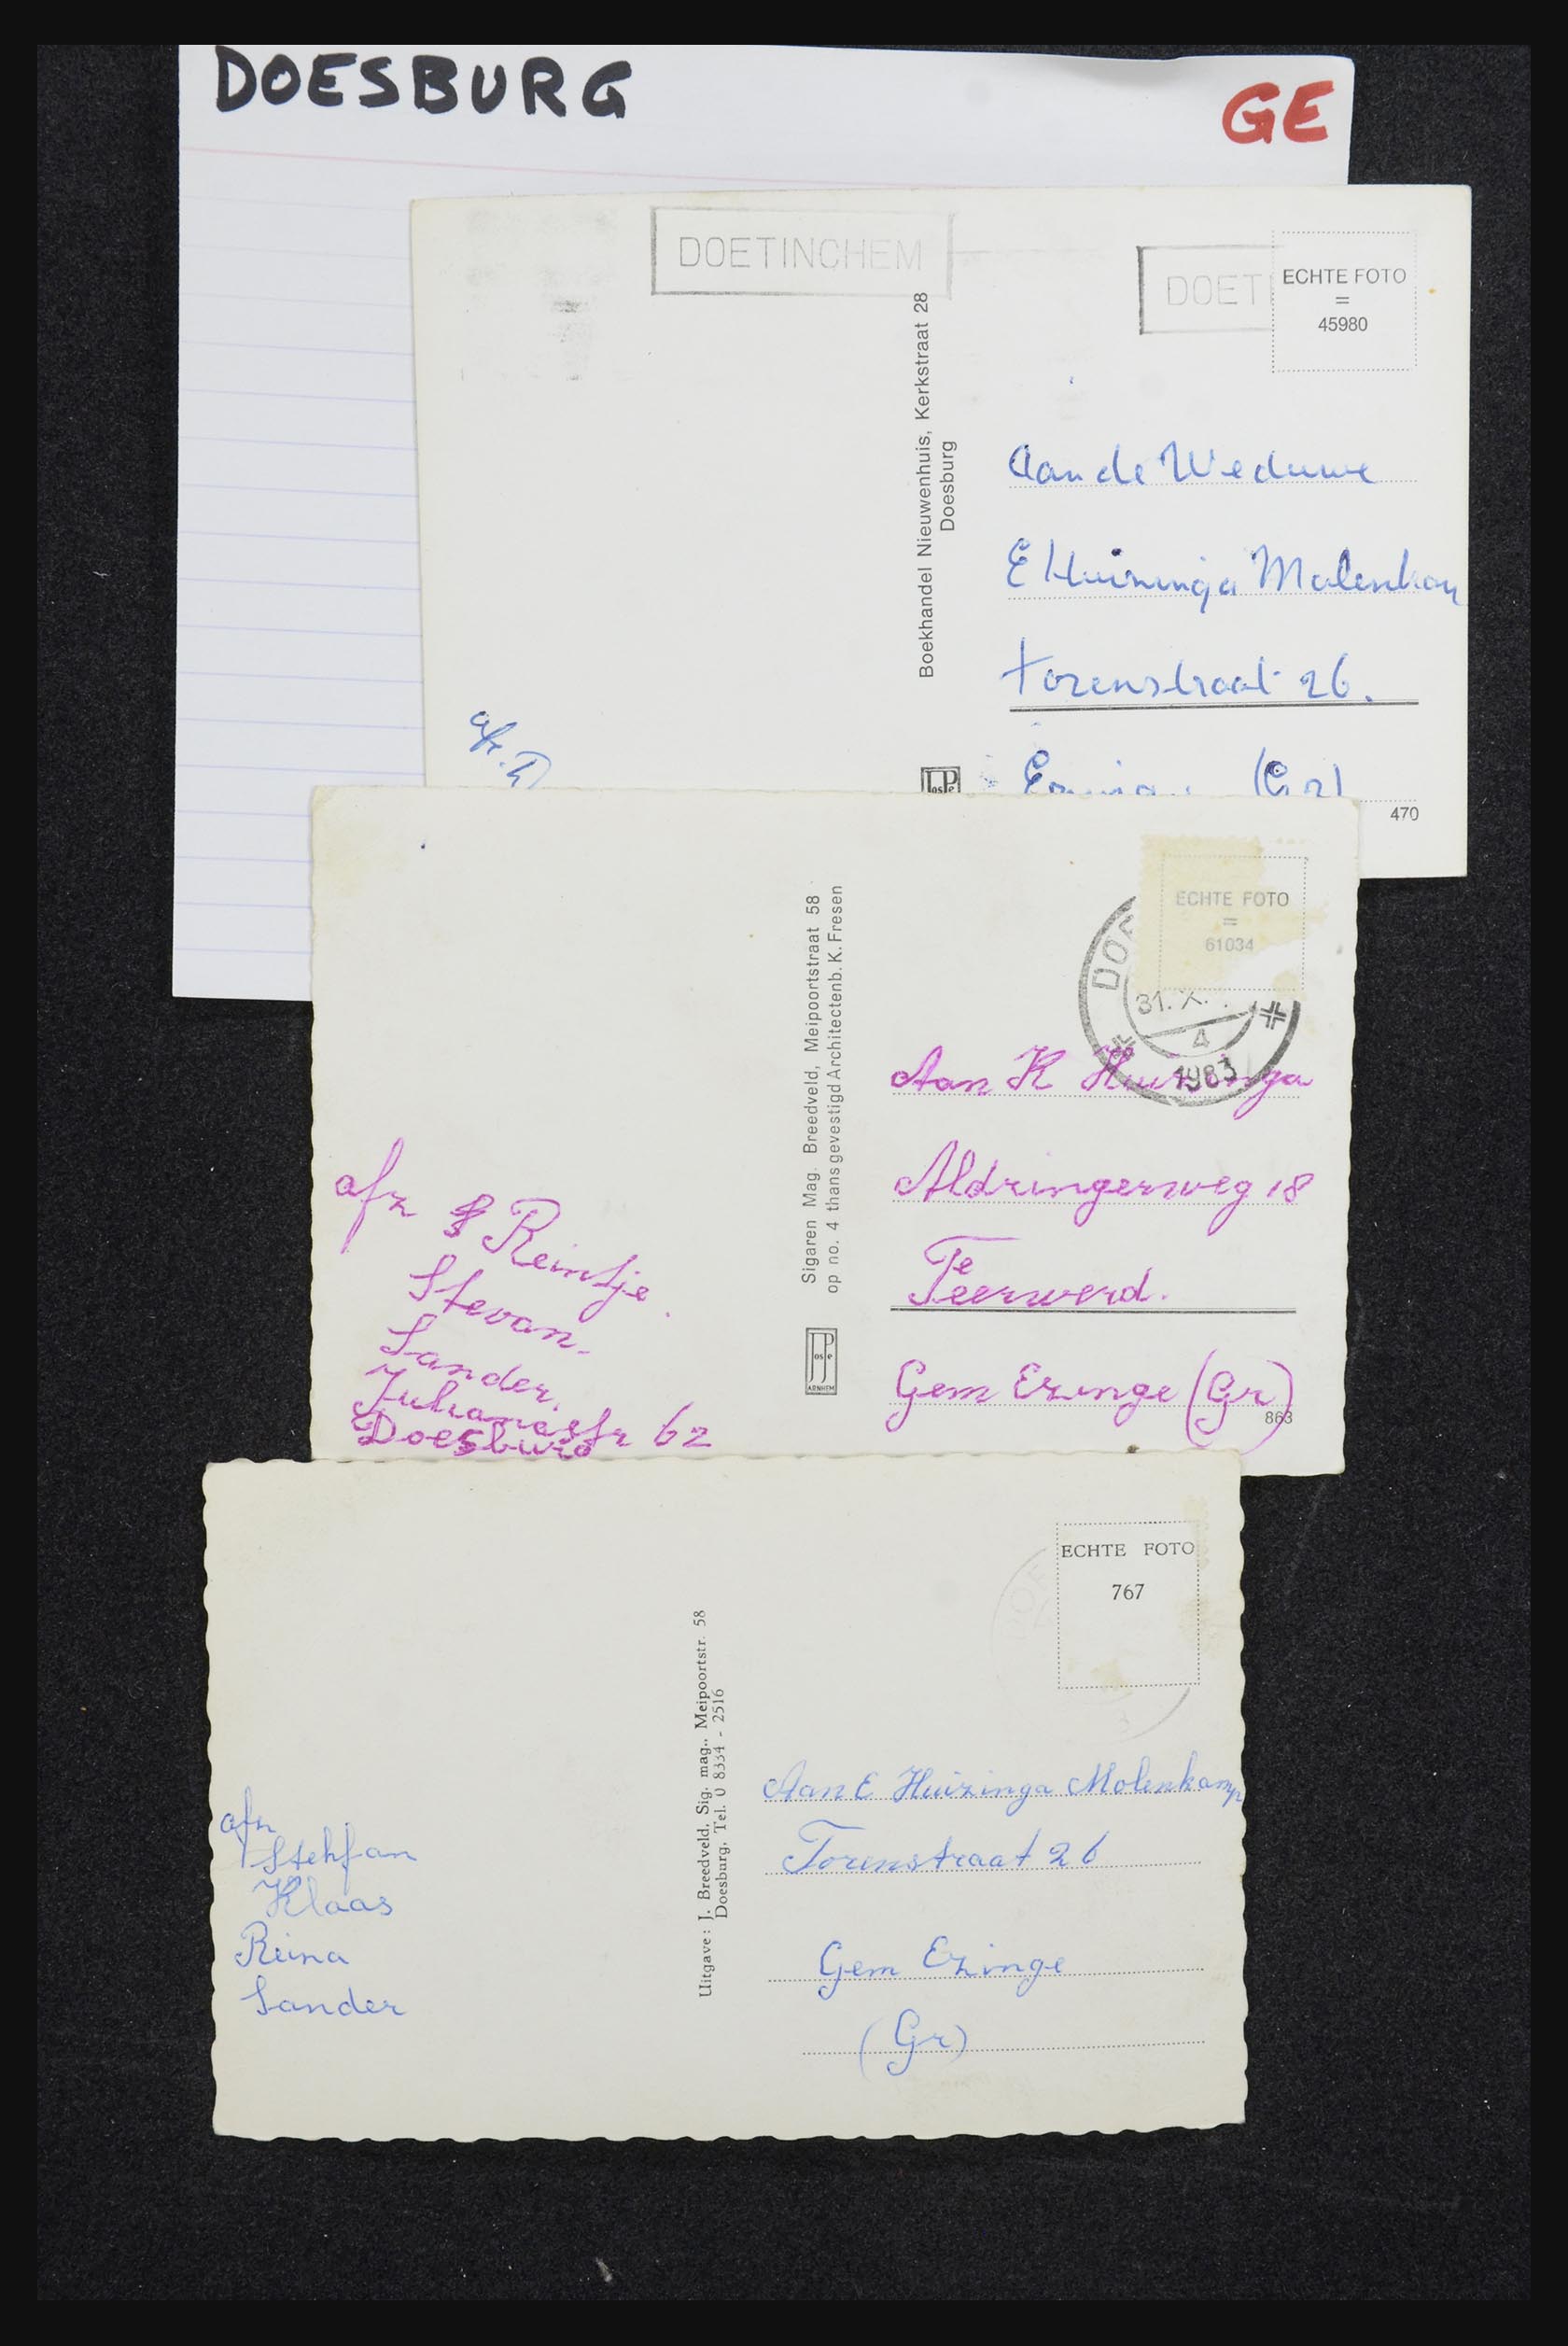 DOESBURG
GE
DOETINCHEM
DOET
ECHTE FOTO
=
45980
Boekhandel Nieuwenhuis, Kerkstraat 28
Doesburg
Aan de Weduwe
E Huizinga Molenkam
Torenstraat 26.
(Gr)
afz.
JosPé
470
ECHTE FOTO
=
61034
DOE
31.X.
4
1983
Sigaren Mag. Breedveld, Meipoortstraat 58
op no. 4 thans gevestigd Architectenb. K. Fresen
JosPé
ARNHEM
Aan K Huizinga
Aldringerweg 18
Te
Feerwerd.
Gem Ezinge (Gr)
863
afz Reintje.
Stevan.
Sander.
Julianastr 62
Doesburg
ECHTE FOTO
767
DOE
3
Uitgave: J. Breedveld, Sig. mag., Meipoortstr. 58
Doesburg, Tel. 0 8334 - 2516
Aan E Huizinga Molenkamp
Torenstraat 26
Gem Ezinge
(Gr)
afz
Stehfan
Klaas
Reina
Sander